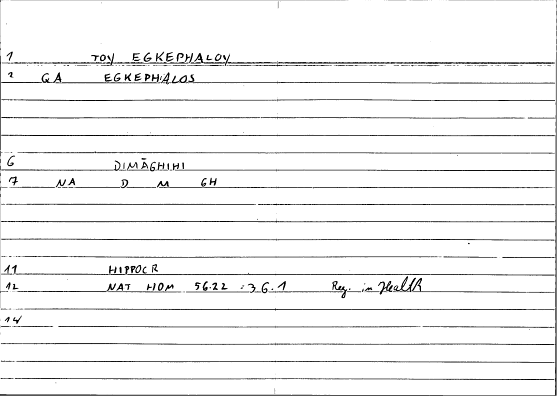 1 TOY EGKEPHALOY
2 QA EGKEPHALOS
6 DIMĀGHIHI
7 NA D M GH
11 HIPPOCR
12 NAT HOM 56.22 = 3.6.1 Reg. in Health
14